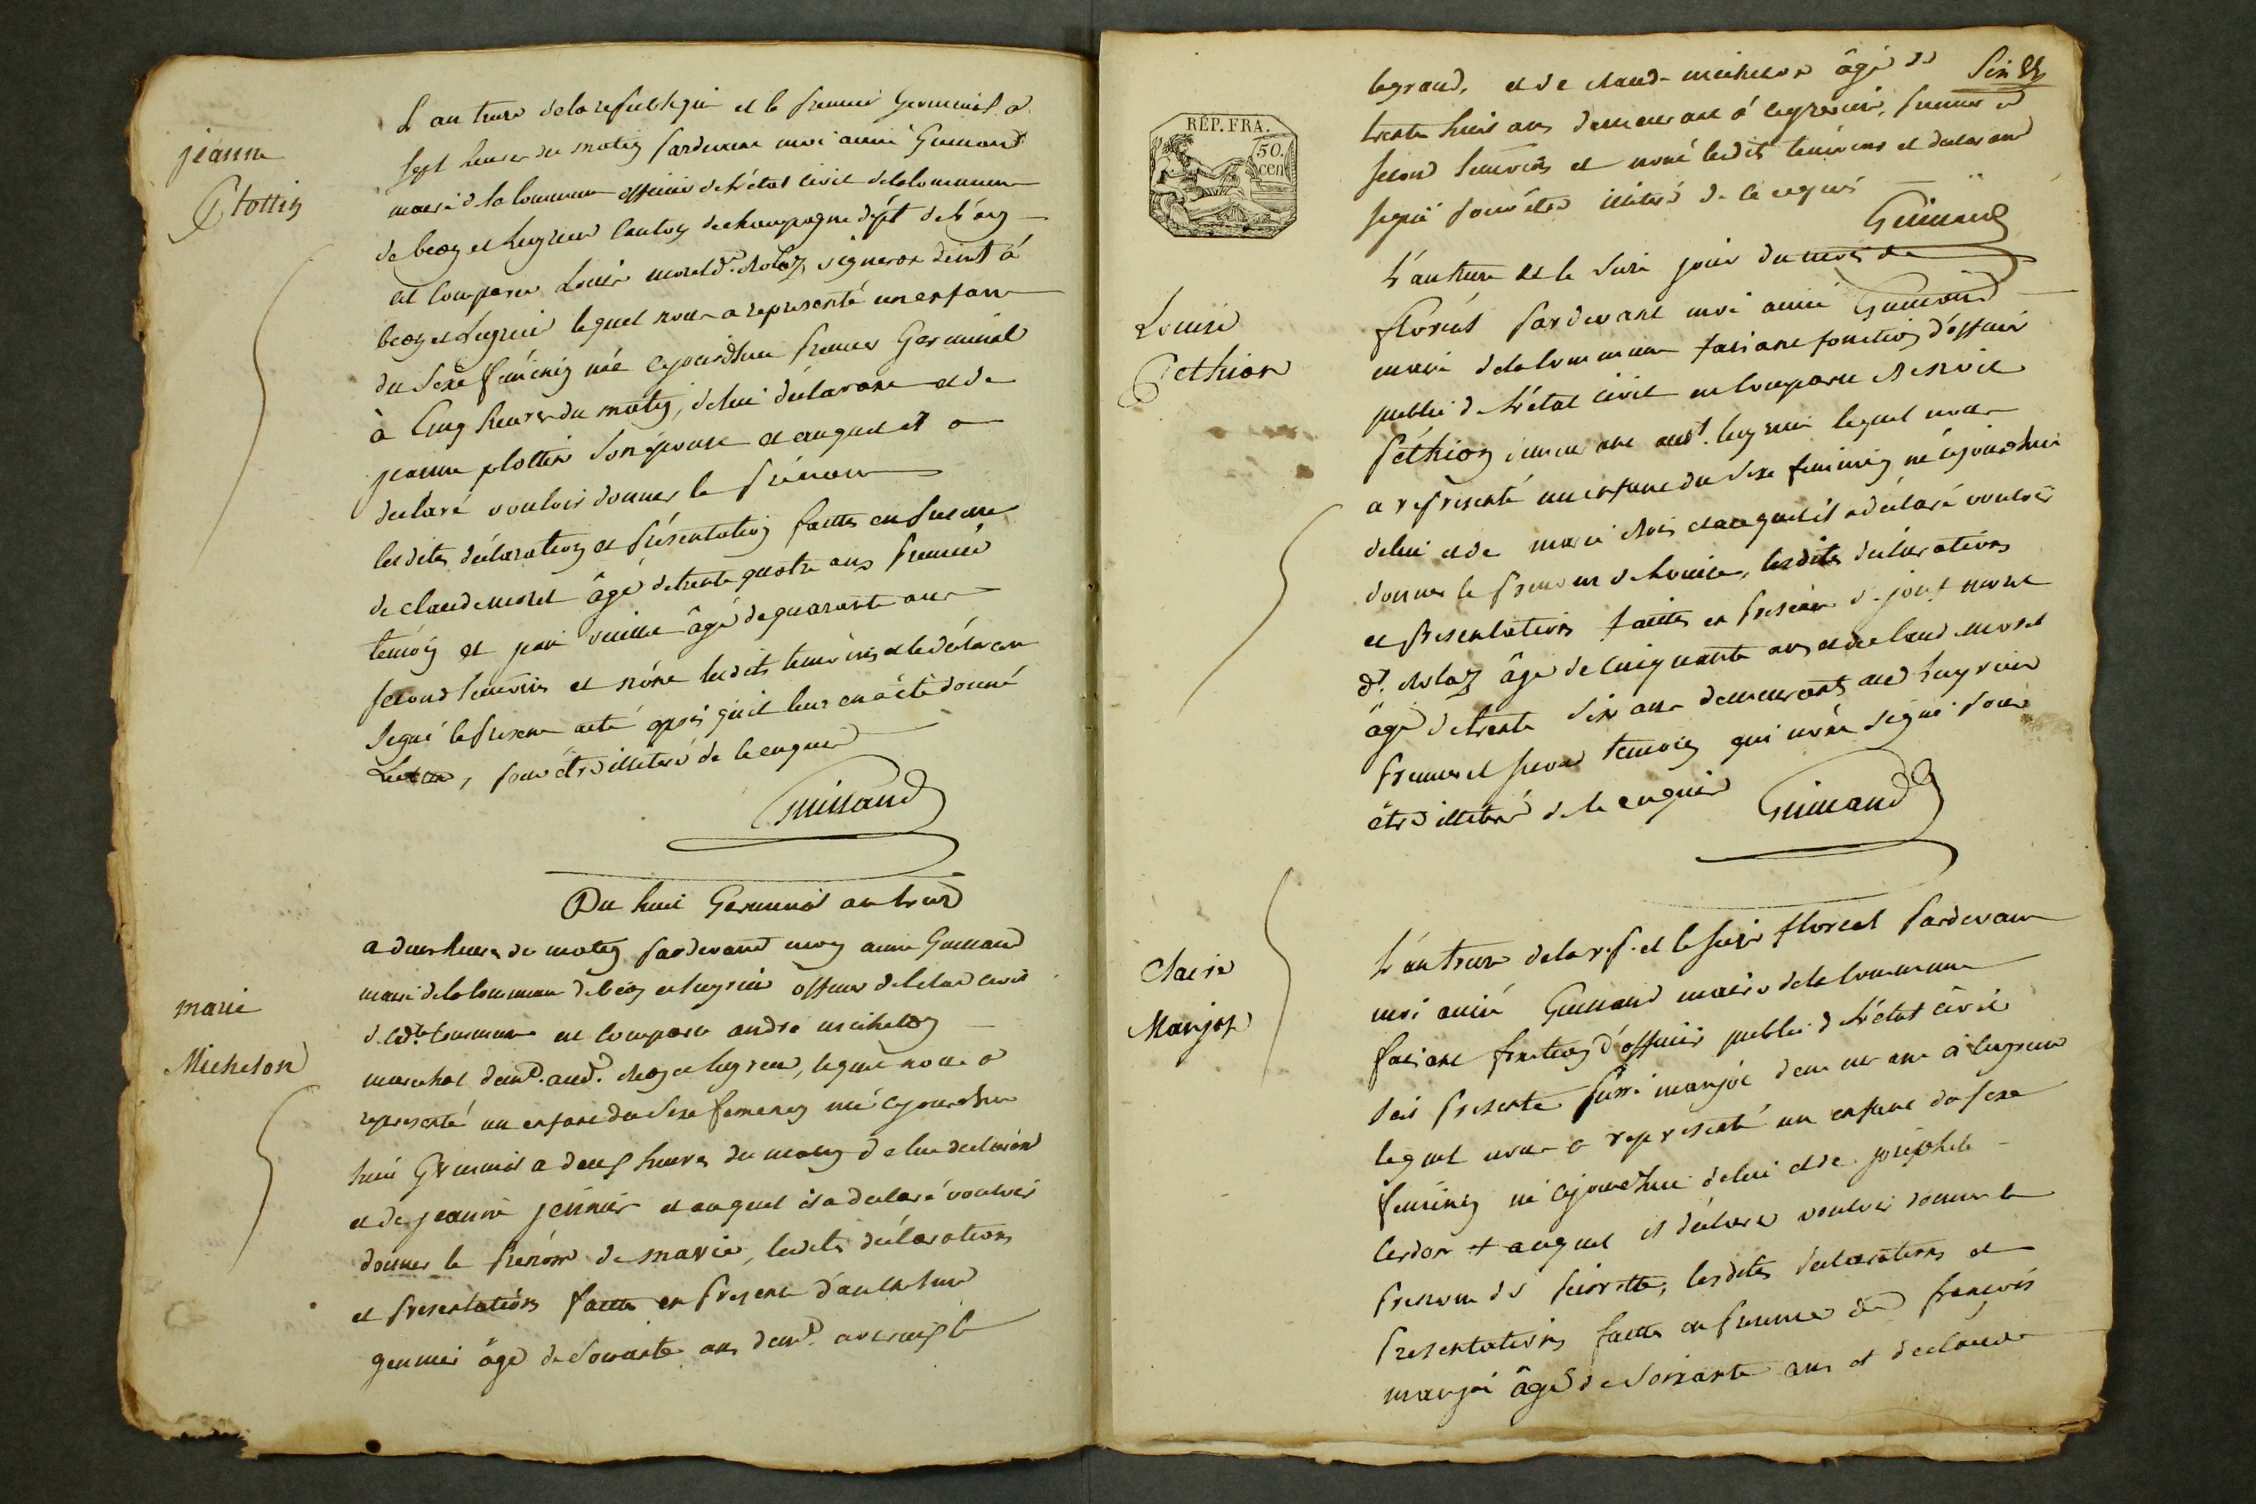 jeanne
Plottin
L'an treize de la republique et le premier Germinal a
sept heures du matin pardevant moi aimé Guinand
maire de la commune officier de l'état civil de la commune
de beon et luyrieu canton de champagne dépt de l'ain
est comparu Louis morel dt. Molaz vigneron demt à
beon et Luyrieu lequel nous a représenté un enfant
du sexe féminin née cejourdhui premier Germinal
à Cinq heures du matin, de lui déclarant et de
jeanne plottin son epouse et auquel il a
declaré vouloir donner le Prénom
lesdites déclaration et présentation faittes en presence
de claude morel âgé de trente quatre ans premier
temoin et âgé de quarante ans
second temoins et n'ont lesdits temoins et le déclarant
signé le present acte après qu'il leur en a été donné
Lecture, pour être illiteré de ce enquis
Guinand
marie
Michelon
Du huit Germinal an treize
a deux heures du matin pardevant moy aimé Guinand
maire de la commune de beon et luyrieu officier de l'etat civil
de lade. commune est comparu andré michelon
marechal demt. aud. Beon et luyrieu, lequel nous a
representé un enfant du sexe femenin né cejourdhui
huit Germinal a deux heures du matin de lui declarant
et de jeanne jennier et auquel il a declaré vouloir
donner le prénom de marie, lesdites déclarations
et presentations faittes en presence d'anthelme
gennier âgé de soixante ans demt.
legrand, et de claude michelon âgé de
Six
trente huit ans demeurant à luyrieu, premier et
second temoins et n'ont lesdits temoins et declarant
signé pour être illiteré de ce enquis
Guinand
RÉP. FRA.
50.
cen
Louise
Pethion
L'an treize et le Six jour du mois de
floréal pardevant moi aimé Guinand
maire de la commune faisant fonction d'officier
public de l'état civil est comparu Benoit
Péthion demeurant audt. luyrieu lequel nous
a représenté un enfant du sexe feminin né cejourdhui
de lui et de marie et auquel il a déclaré vouloir
donner le prenom de Louise, lesdites declarations
et presentations faittes en presence de joseph morel
dt. Molaz âgé de cinquante ans et de claude morel
âgé de trente six ans demeurants aud luyrieu
premier et second temoin qui n'ont signé pour
être illiteré de ce enquis
Guinand
Claire
Manjot
L'an treize de la rep. et le Seize floreal pardevant
moi aimé Guinand maire de la commune
faisant fonction d'officier public de l'état civil
s'est presenté Pierre manjot demeurant à luyrieu
lequel nous a representé un enfant du sexe
feminin né cejourdhui de lui et de josephete
cerdon + auquel il déclare vouloir donner le
prenom de, lesdites declarations et
presentations faittes en presence de françois
manjot âgé de soixante ans et de claude